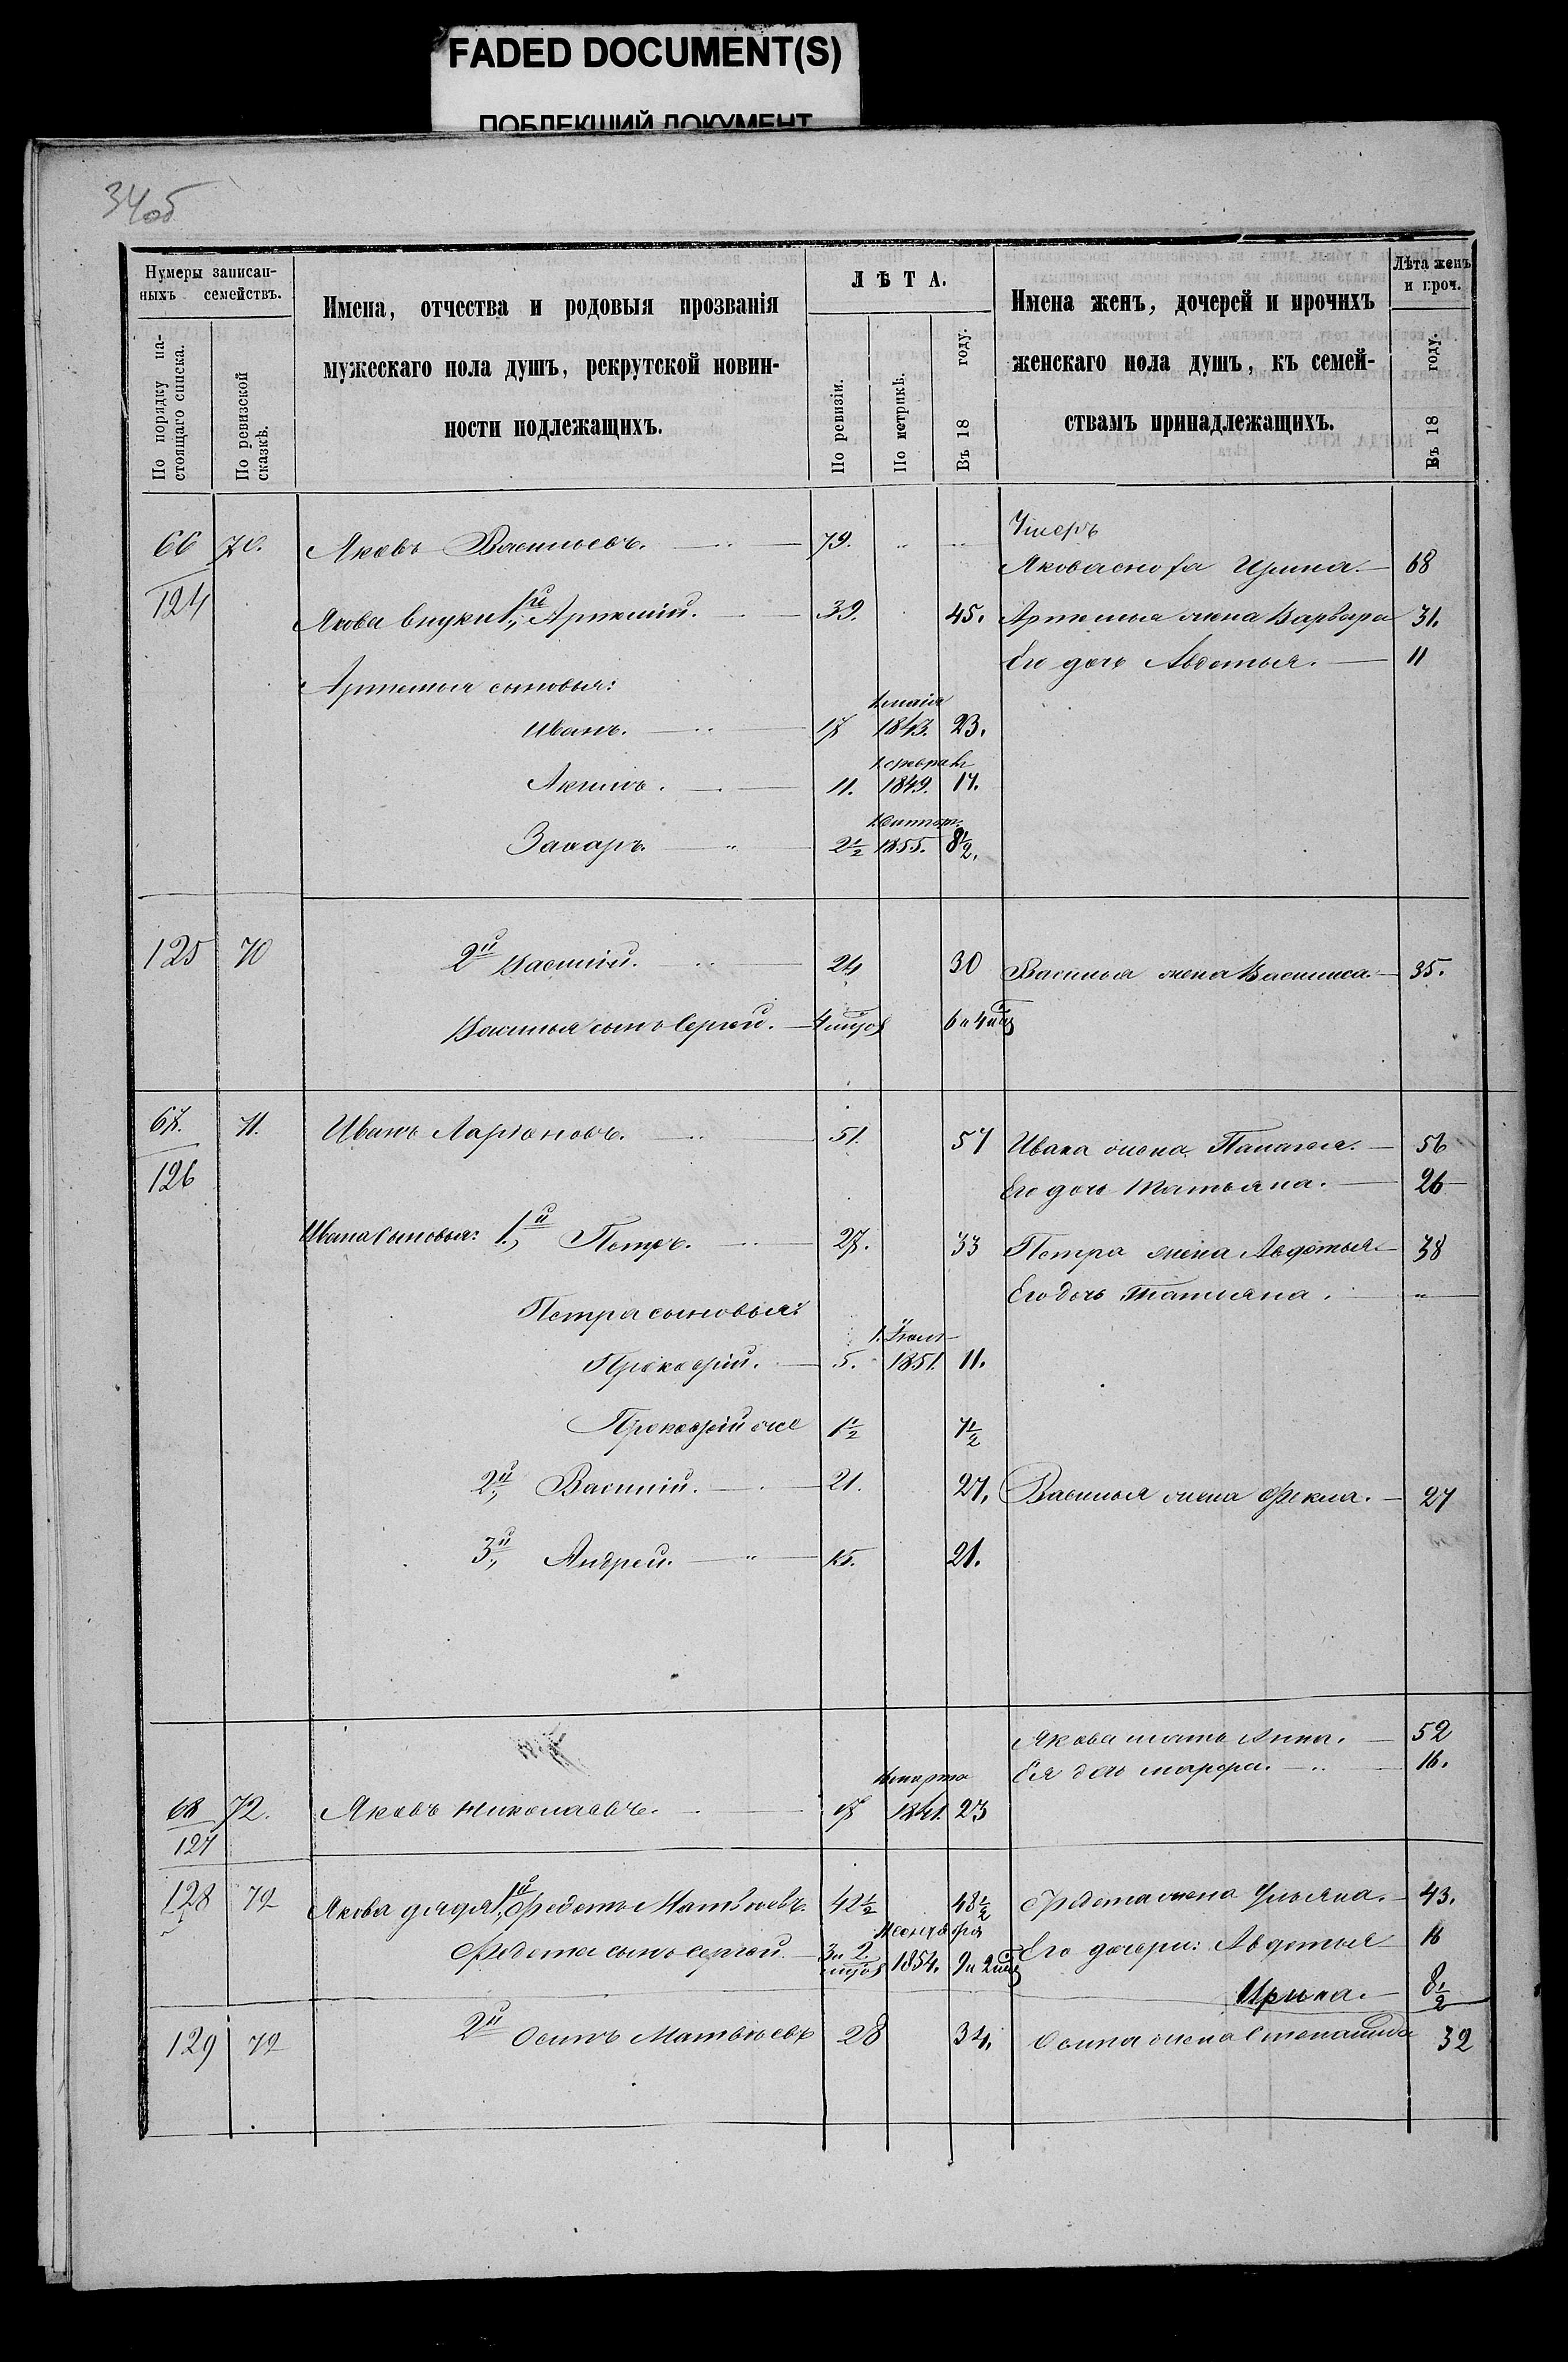 FADED DOCUMENT(S)
ПОБЛЕКШИЙ ДОКУМЕНТ
34об
Нумеры записан-
ныхъ семействъ.
По порядку на-
стоящаго списка.
По ревизской
сказкѣ.
Имена, отчества и родовыя прозванія
мужескаго пола душъ, рекрутской повин-
ности подлежащихъ.
ЛѢТА.
По ревизіи.
По метрикѣ.
Въ 18 году.
Имена женъ, дочерей и прочихъ
женскаго пола душъ, къ семей-
ствамъ принадлежащихъ.
Лѣта женъ
и проч.
Въ 18 году.
66 70. Яковъ Васильевъ. 79. Умеръ
Якова сноха Ирина 68
124 Якова внуки 1й Артемій. 39. 45. Артемья жена Варвара 31.
Его дочь Авдотья. 11
Артемья сыновья:
Иванъ. 17 1 маія 1843. 23.
Акимъ. 11. 1849. 17.
Захаръ. 2½ 1855. 8½.
125 70 2й Василій. 24 30 Василья жена Василиса. 35.
Василья сынъ Сергей. 4 мцов 6 и 4 мц
67. 71. Иванъ Ларіоновъ. 51. 57 Ивана жена Палагея. 56
126 Его дочь Татьяна. 26
Ивана сыновья: 1й, Петръ. 27. 33 Петра жена Авдотья 38
Его дочь Татьяна. "
Петра сыновья:
Прокофій. 5. 1851. 11.
Прокофій же 1½ 7½
2й, Василій. 21. 27. Василья жена Фекла. 27
3й, Андрей. 15. 21.
Якова мать Анна. 52
Ея дочь Марфа. 16.
68 72. Яковъ Николаевъ. 17 марта 1841. 23
127
128 72 Якова дядя 1й, Федотъ Матвѣевъ. 42½ 48½ Федота жена Ульяна. 43.
Федота сынъ Сергей 3 и 2 мцов 1854. 9 и 2 мц Его дочери: Авдотья 16
Ирина. 8½
129 72 2й Осипъ Матвѣевъ 28 34. Осипа жена Степанида 32